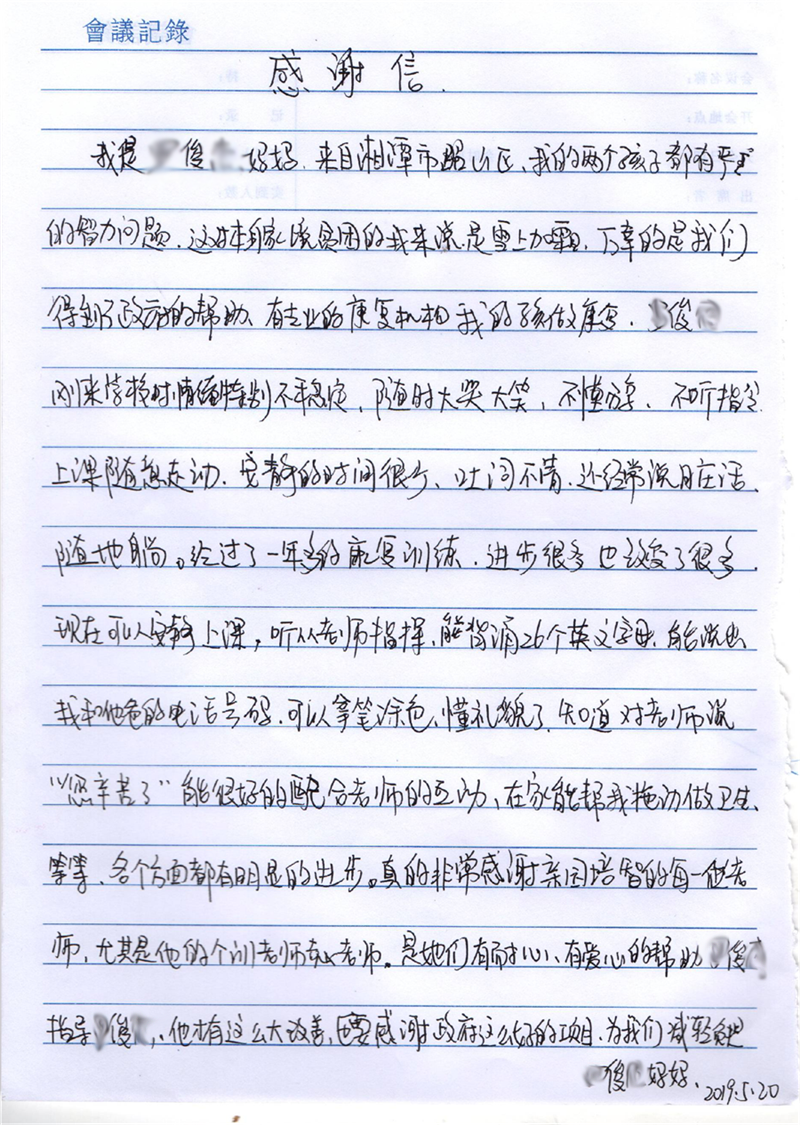 會議記錄
感谢信.
我是 俊 妈妈.来自湘潭市昭山区、我的两个孩子都有严重
的智力问题.这对本身家境贫困的我来说是雪上加霜.万幸的是我们
得到了政府的帮助、有专业的康复机构 我的孩做康复. 俊
刚来学校时情绪特别不稳定,随时大哭大笑,不懂分享、不听指令
上课随意走动.安静的时间很少、吐词不清.还经常说自在话、
随地躺。经过了一年多的康复训练.进步很多也改变了很多.
现在可以安静上课,听从老师指挥.能背诵26个英文字母.能说出
我和他爸的电话号码.可以拿笔涂色,懂礼貌了.知道对老师说
“您辛苦了”能很好的配合老师的互动、在家能帮我拖动做卫生
等等、各个方面都有明显的进步。真的非常感谢 培智的每一位老
师,尤其是他的个训老师 老师。是她们有耐心、有爱心的帮助 俊
指导 俊 .他才有这么大改善, 要感谢政府这么好的项目.为我们减轻负担
俊 妈妈.
2019.5.20